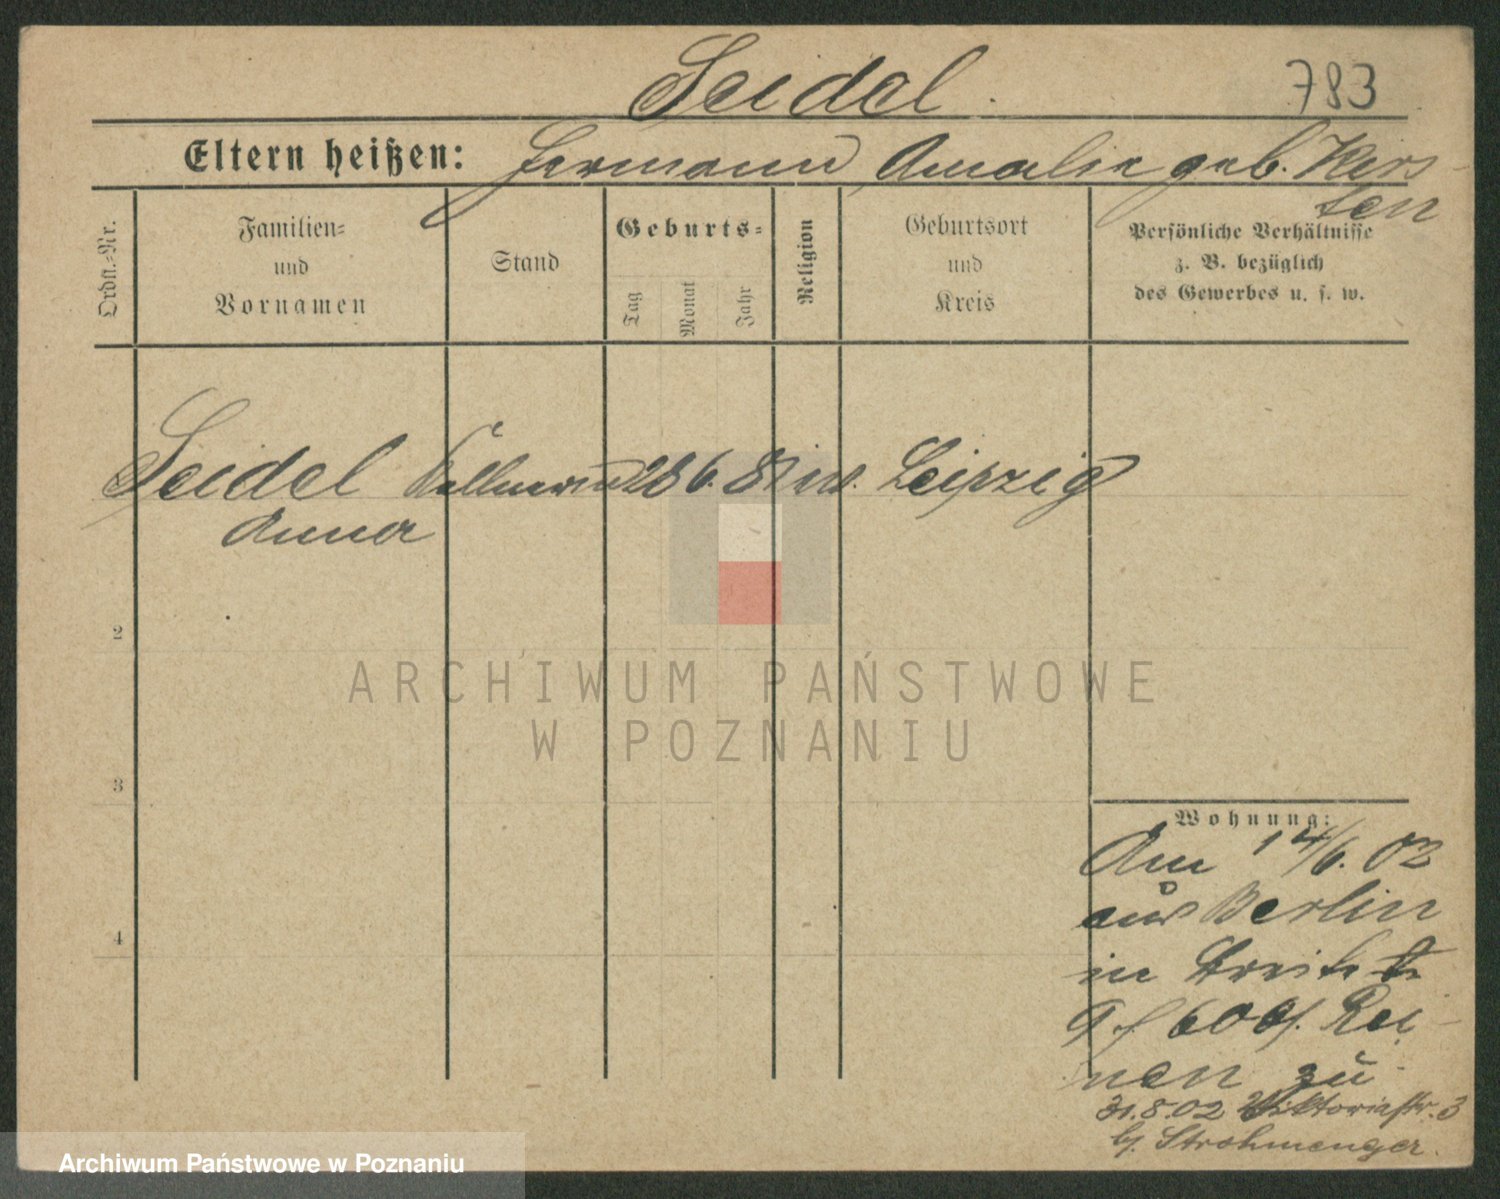 Seidel.
783
Eltern heißen: Hermann Amalie geb. Kers-
ten
Ordn.-Nr.
Familien-
und
Vornamen
Stand
Geburts-
Tag
Monat
Jahr
Religion
Geburtsort
und
Kreis
Persönliche Verhältnisse
z. B. bezüglich
des Gewerbes u. s. w.
Seidel Kellnerin 28 6. ev. Leipzig
Anna
2
3
4
ARCHIWUM PAŃSTWOWE
W POZNANIU
Wohnung:
Am 14/6. 02
aus Berlin
in
zu
31.8.02 Viktoriastr. 3
bj. Strohmenger.
Archiwum Państwowe w Poznaniu